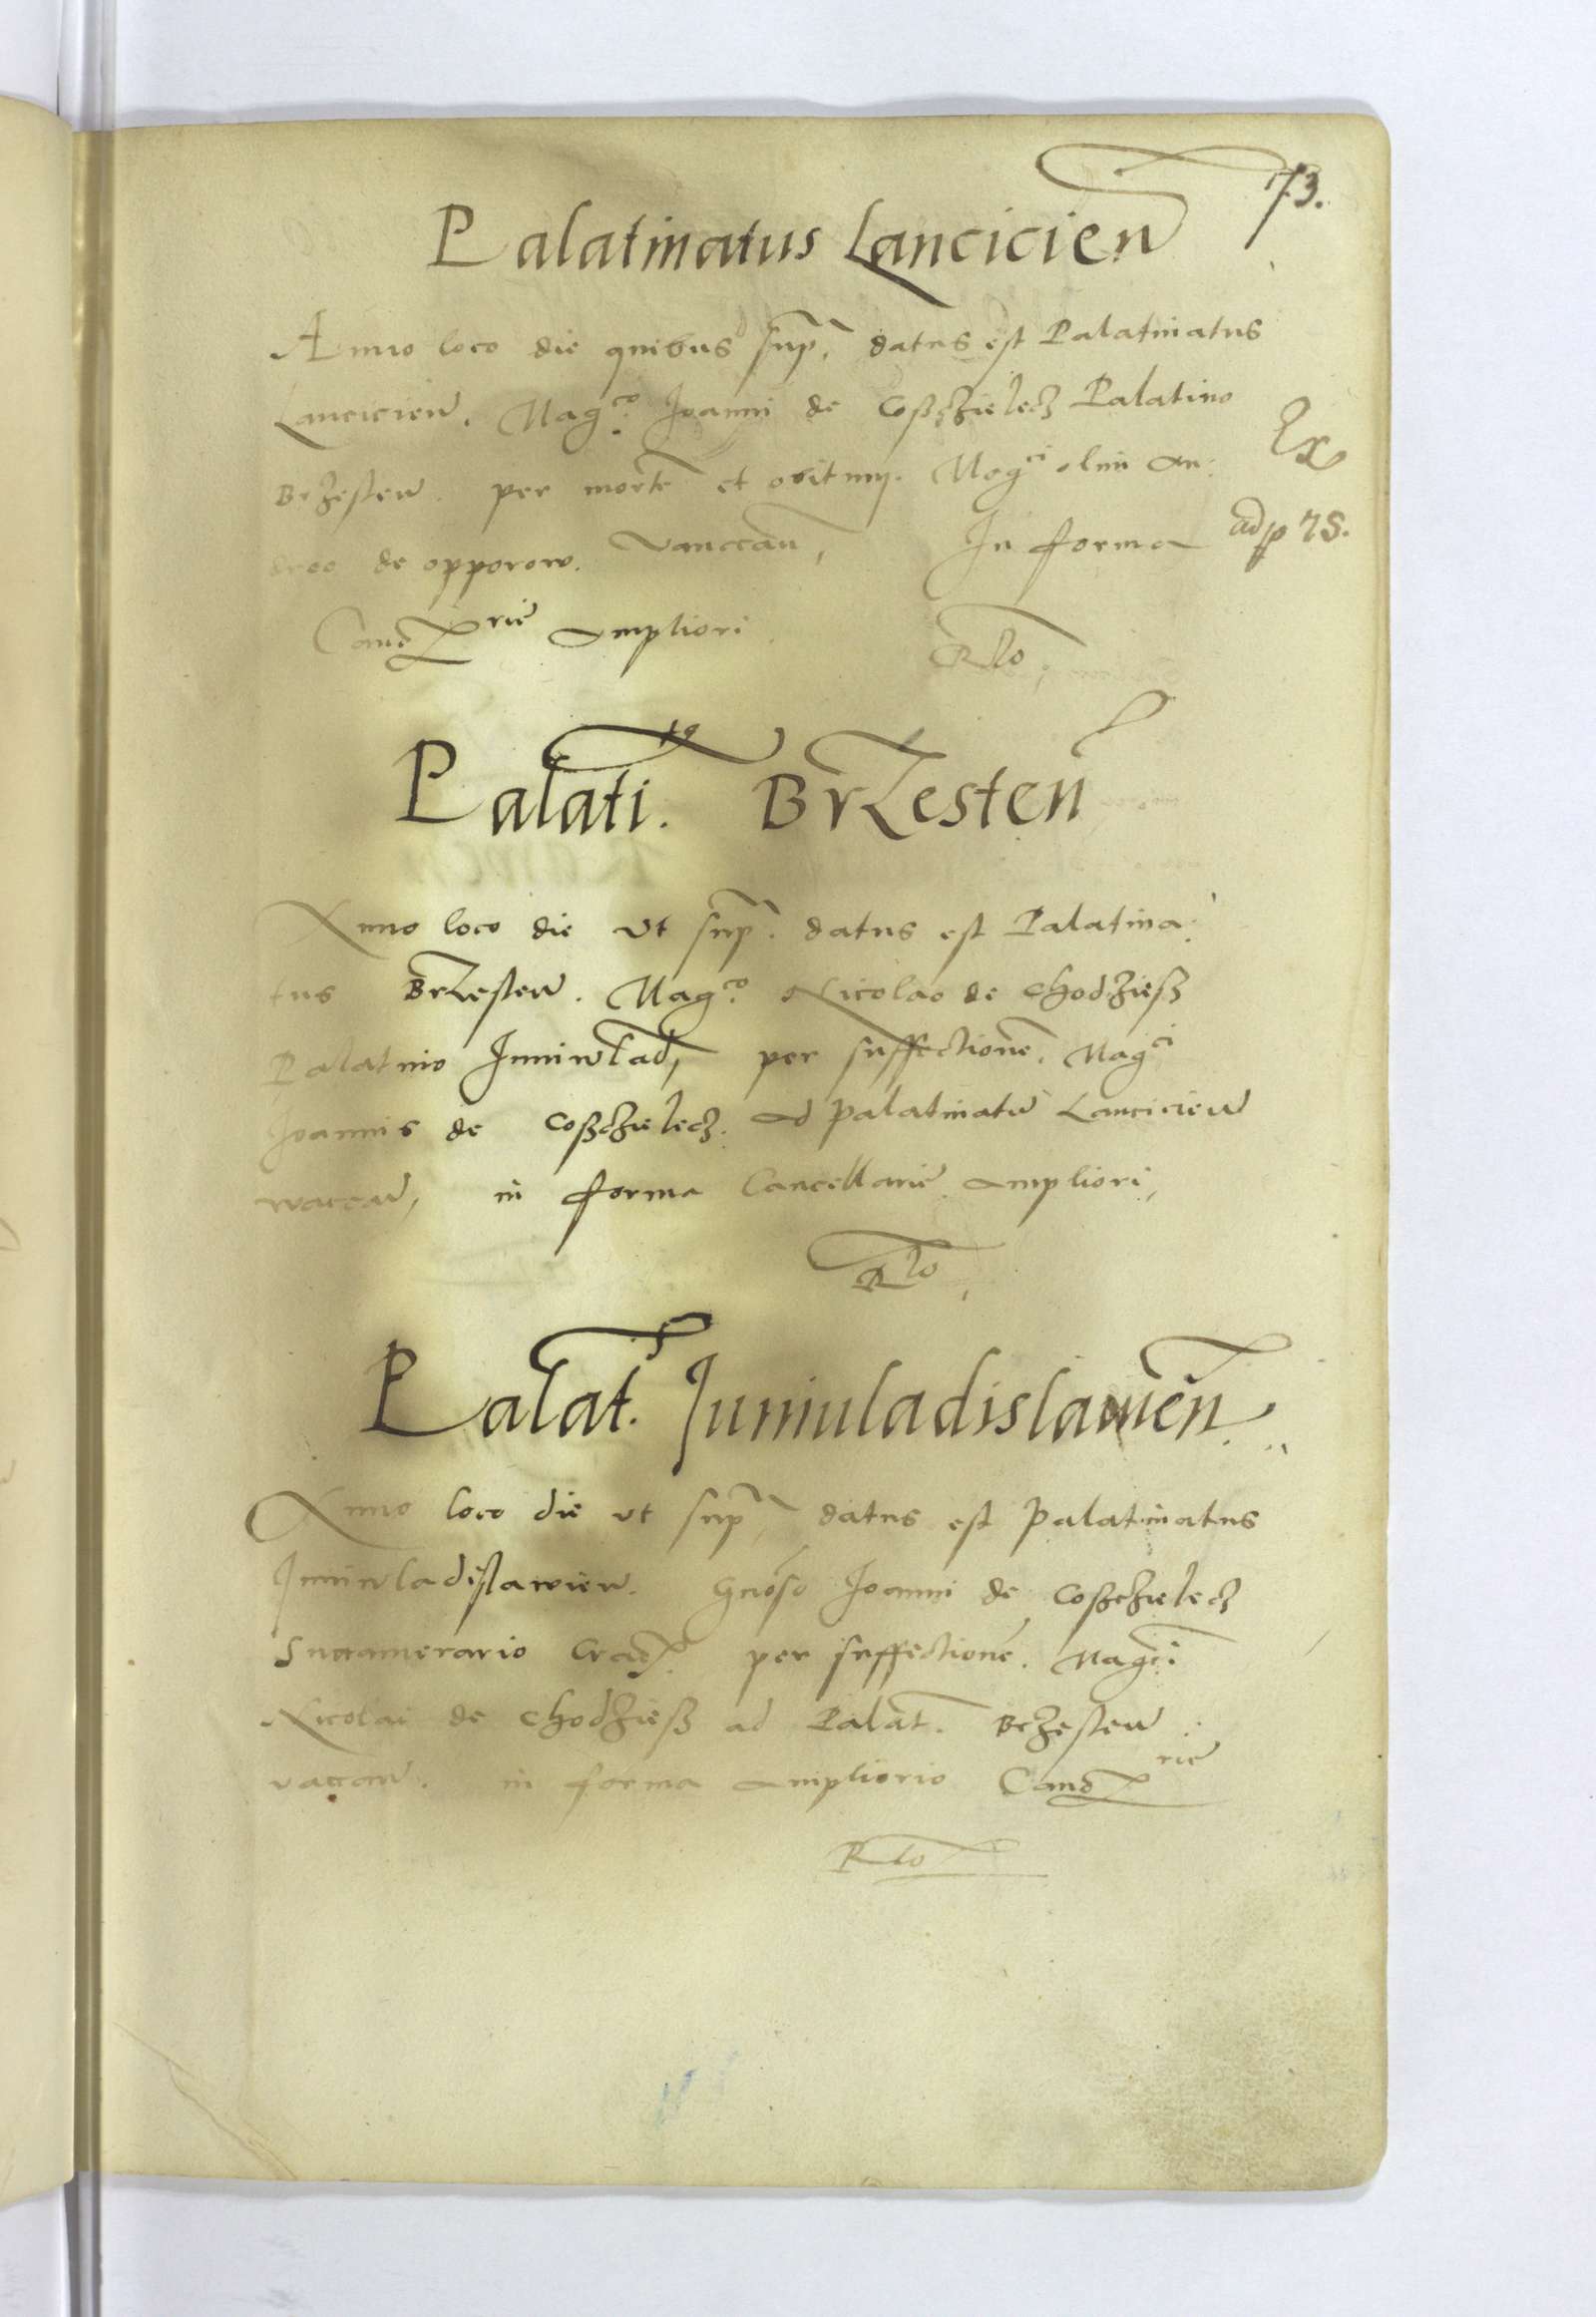 73.
Palatinatus Lancicien
Anno loco die quibus sup. datus est Palatinatus
Lancicien. Magco. Joanni de Coßczielecz Palatino
Brzesten. per morte et obitum. Magci olim An:
dree de opporow. vanccan, In forma
Ex
ad p 75.
Cancrie ampliori
Rlo
Palati. tq Brzesten
Anno loco die ut sup. datus est Palatina:
tus Brzesten. Magco. Nicolao de Chodzieß
Palatino Juniwlad, per suffectione. Magci
Joannis de Coßczielecz. ad palatinatu Lancicien
waccan, in forma Cancellarie ampliori,
Rlo,
Palat. Juniuladislauien
Anno loco die ut sup, datus est palatinatus
Juniwladislawien. Gnoso Joanni de Coßczielecz
Succamerario Crac. per suffectione. Magci
Nicolai de Chodzieß ad Palat. Brzesten:
vaccan. in forma ampliorio Cancrie
Rlo